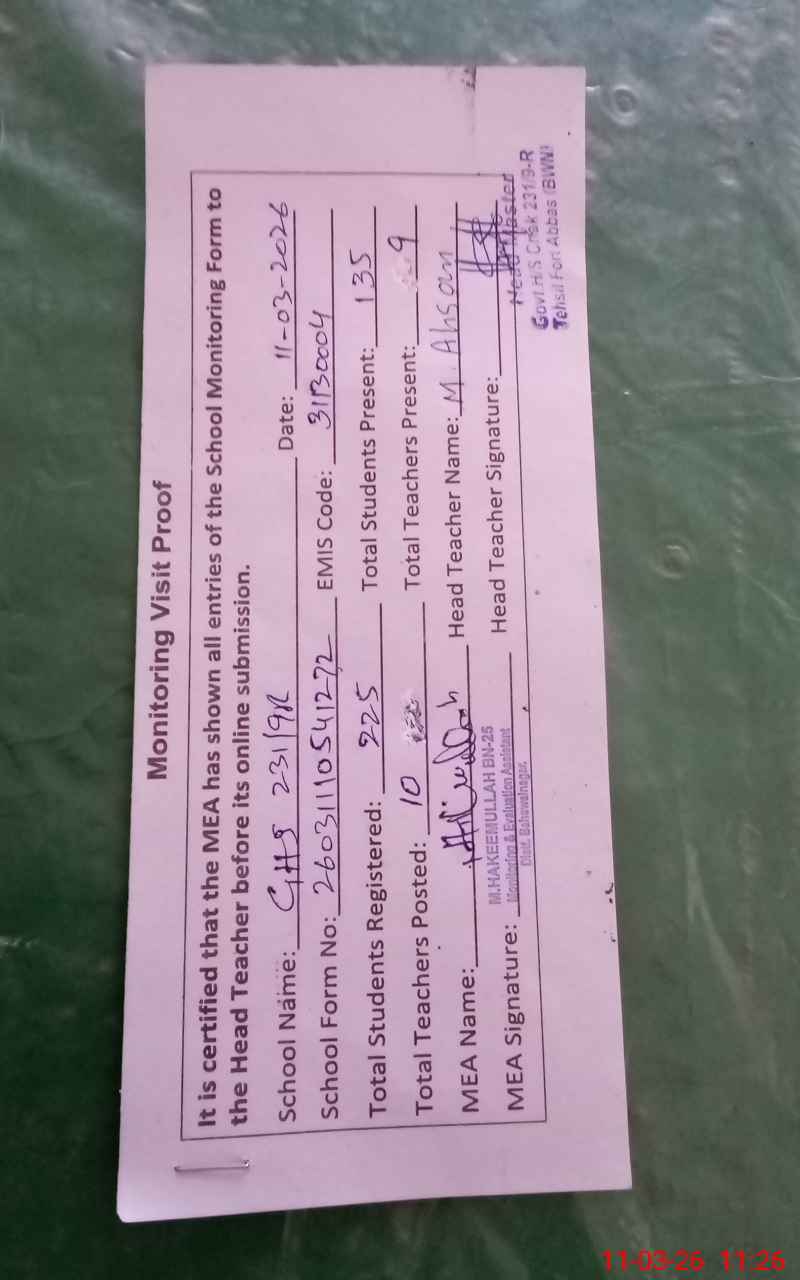 Monitoring Visit Proof
It is certified that the MEA has shown all entries of the School Monitoring Form to
the Head Teacher before its online submission.
School Name: GHS 231/9R Date: 11-03-2026
School Form No: 260311110541272 EMIS Code: 31130004
Total Students Registered: 225 Total Students Present: 135
Total Teachers Posted: 10 Total Teachers Present: 9
MEA Name: Head Teacher Name: M. Ahsan
M.HAKEEMULLAH BN-25
Monitoring & Evaluation Assistant
Distt. Bahawalnagar.
MEA Signature: Head Teacher Signature:
Head Master
Govt.H/S Chak 231/9-R
Tehsil Fort Abbas (BWN)
11-03-26 11:26